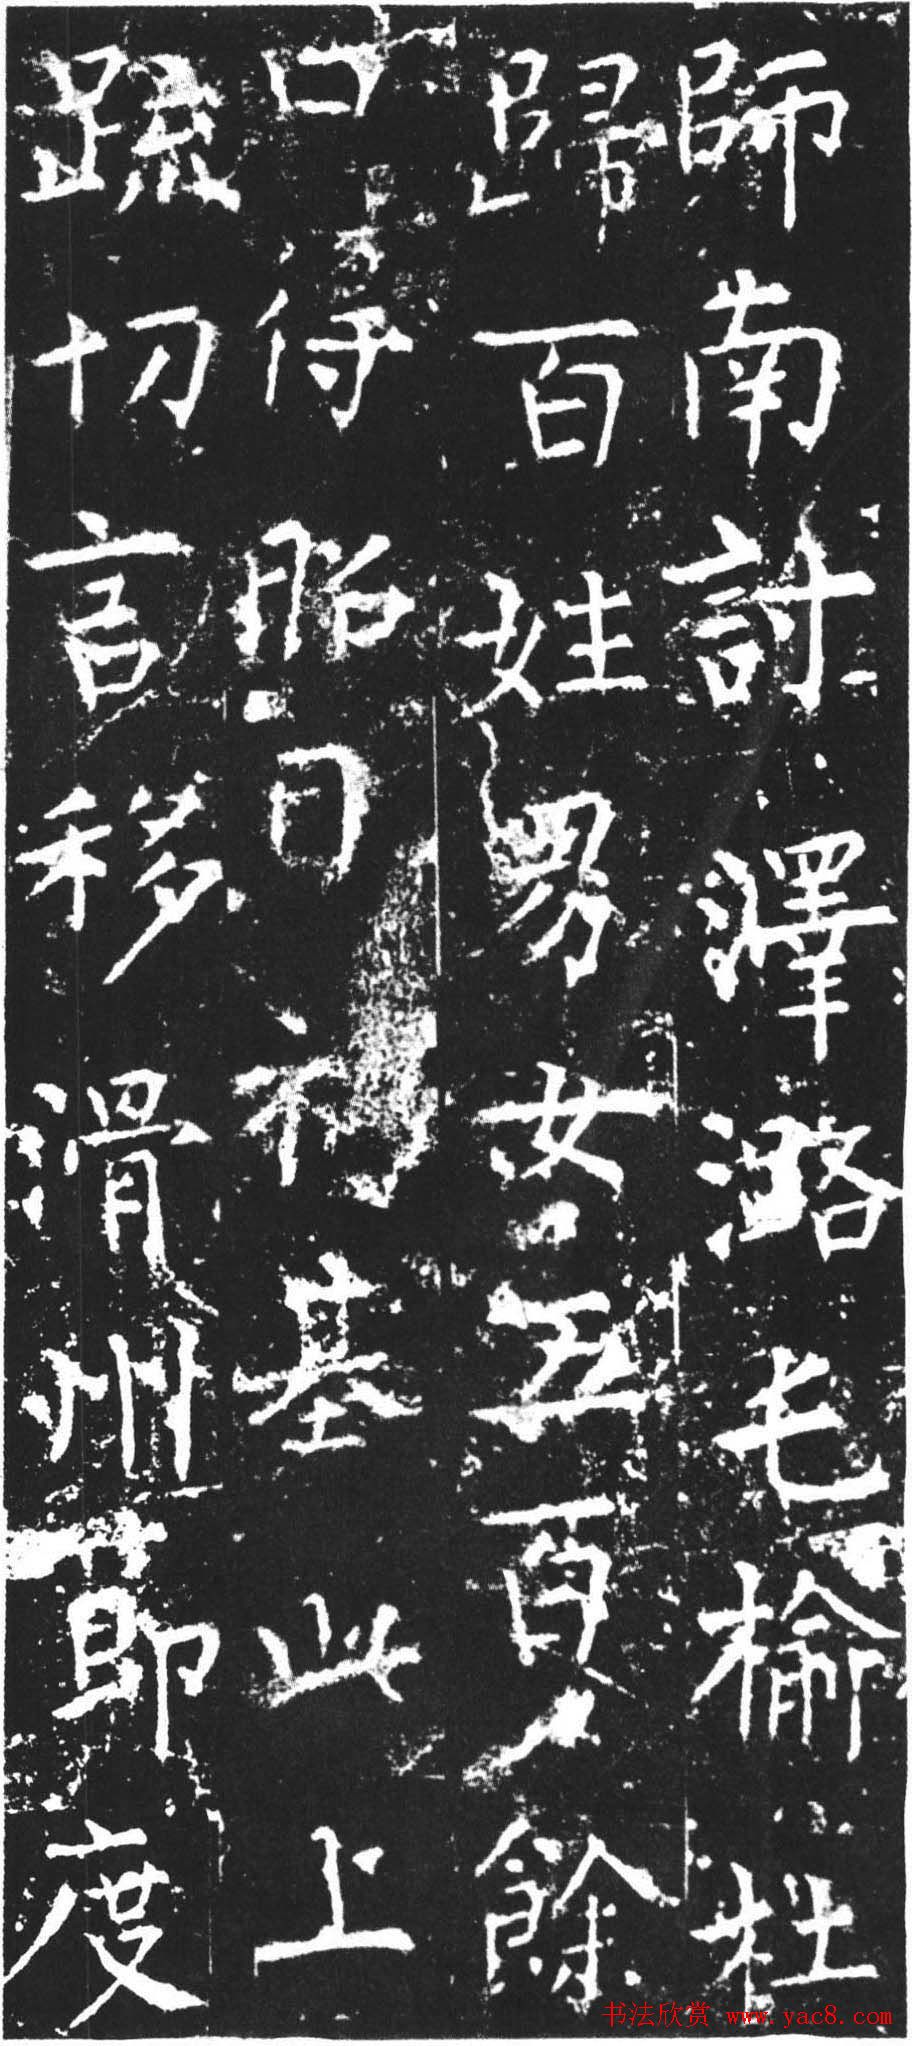 師南討澤潞長榆杜
歸百姓男女五百餘
口得昭日福基此上
疏切言移滑州節度
书法欣赏 www.yac8.com